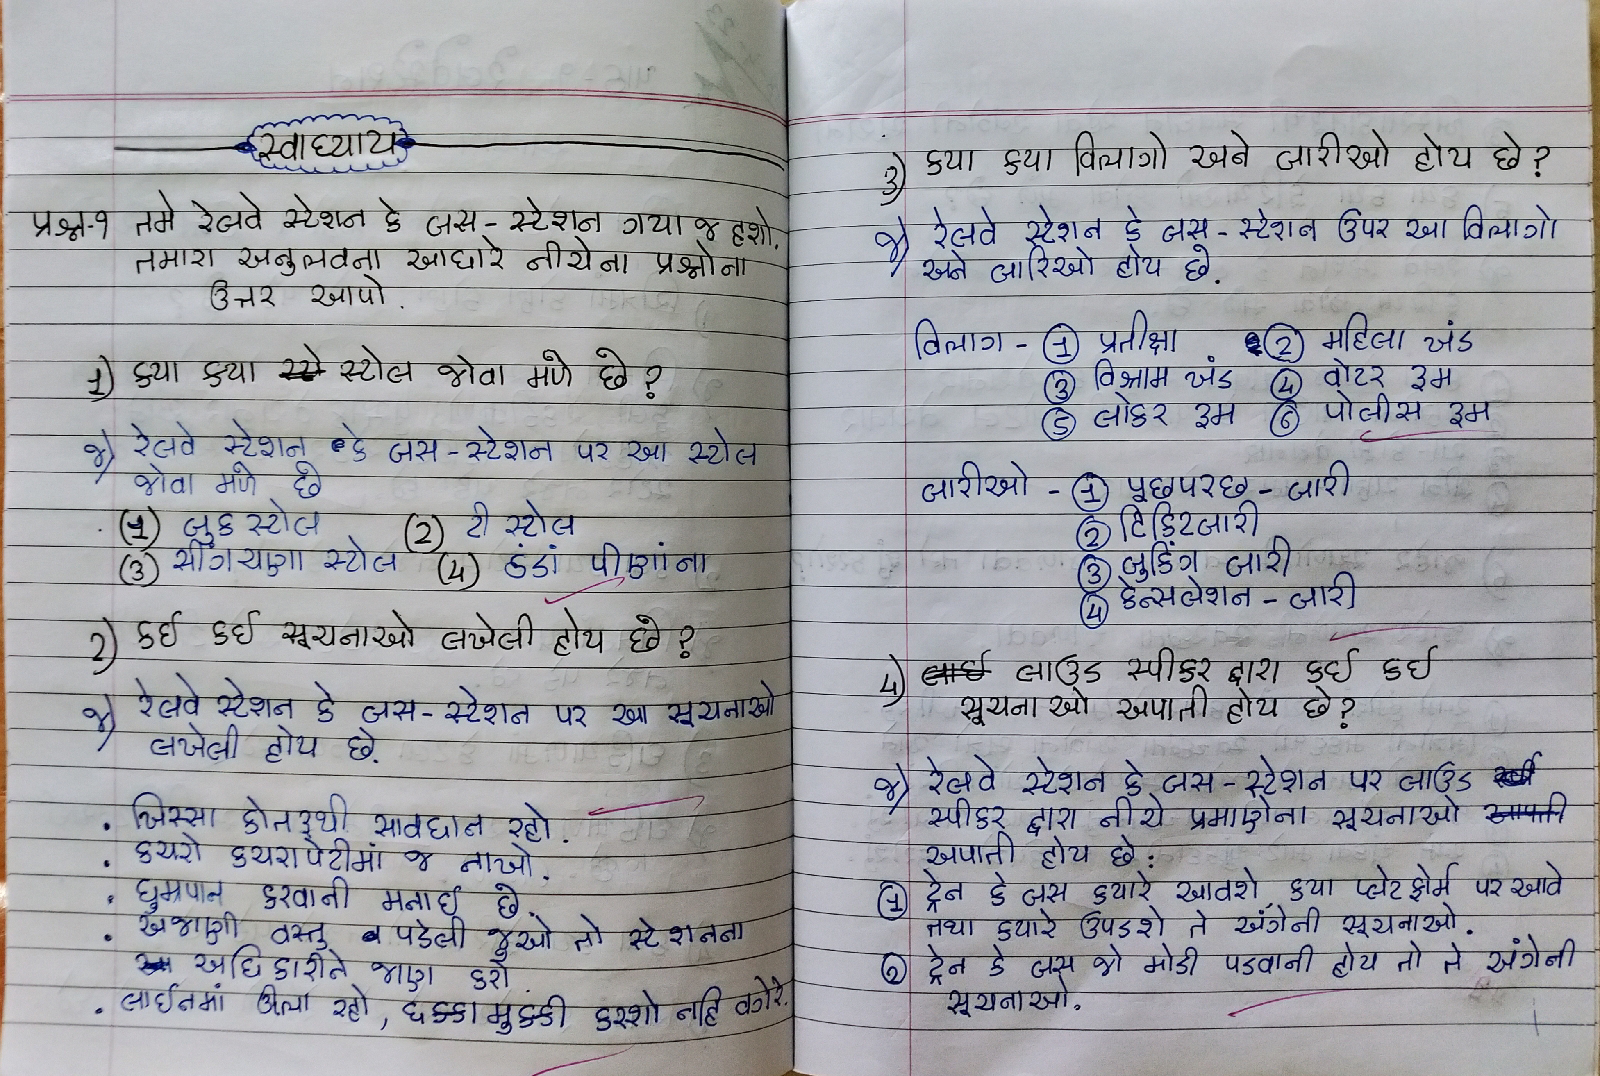 સ્વાધ્યાય
પ્રશ્ન-૧ તમે રેલવે સ્ટેશન કે બસ-સ્ટેશન ગયા જ હશો.
તમારા અનુભવના આધારે નીચેના પ્રશ્નોના
ઉત્તર આપો.
1) કયા કયા સ્ટોલ જોવા મળે છે?
જ) રેલવે સ્ટેશન કે બસ-સ્ટેશન પર આ સ્ટોલ
જોવા મળે છે
(1) બુક સ્ટોલ (2) ટી સ્ટોલ
(3) સીંગચણા સ્ટોલ (4) ઠંડાં પીણાંના
2) કઈ કઈ સૂચનાઓ લખેલી હોય છે?
જ) રેલવે સ્ટેશન કે બસ-સ્ટેશન પર આ સૂચનાઓ
લખેલી હોય છે.
. ખિસ્સા કાતરુથી સાવધાન રહો.
. કચરો કચરાપેટીમાં જ નાખો.
. ધુમ્રપાન કરવાની મનાઈ છે.
. અજાણી વસ્તુ પડેલી જુઓ તો સ્ટેશનના
અધિકારીને જાણ કરો.
. લાઈનમાં ઊભા રહો, ધક્કામુક્કી કરશો નહિ વગેરે.
3) કયા કયા વિભાગો અને બારીઓ હોય છે?
જ) રેલવે સ્ટેશન કે બસ-સ્ટેશન ઉપર આ વિભાગો
અને બારિઓ હોય છે.
વિભાગ - ① પ્રતીક્ષા ② મહિલા ખંડ
③ વિશ્રામ ખંડ ④ વોટર રૂમ
⑤ લોકર રૂમ ⑥ પોલીસ રૂમ
બારીઓ - ① પૂછપરછ - બારી
② ટિકિટબારી
③ બુકિંગ બારી
④ કેન્સલેશન - બારી
4) લાઉડ સ્પીકર દ્વારા કઈ કઈ
સૂચનાઓ અપાતી હોય છે?
જ) રેલવે સ્ટેશન કે બસ-સ્ટેશન પર લાઉડ
સ્પીકર દ્વારા નીચે પ્રમાણેના સૂચનાઓ
અપાતી હોય છે:
① ટ્રેન કે બસ કયારે આવશે, કયા પ્લેટફોર્મ પર આવે
તથા કયારે ઉપડશે તે અંગેની સૂચનાઓ.
② ટ્રેન કે બસ જો મોડી પડવાની હોય તો તે અંગેની
સૂચનાઓ.